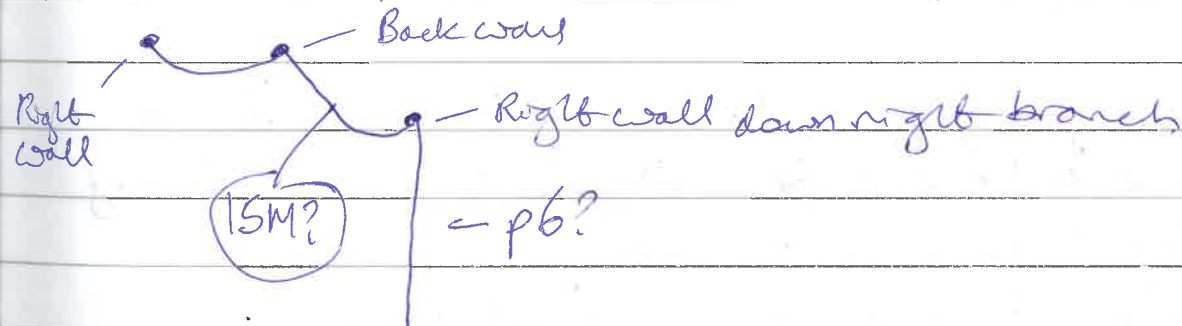 Back wall
Right
wall
Right wall down right branch
15M?
p6?